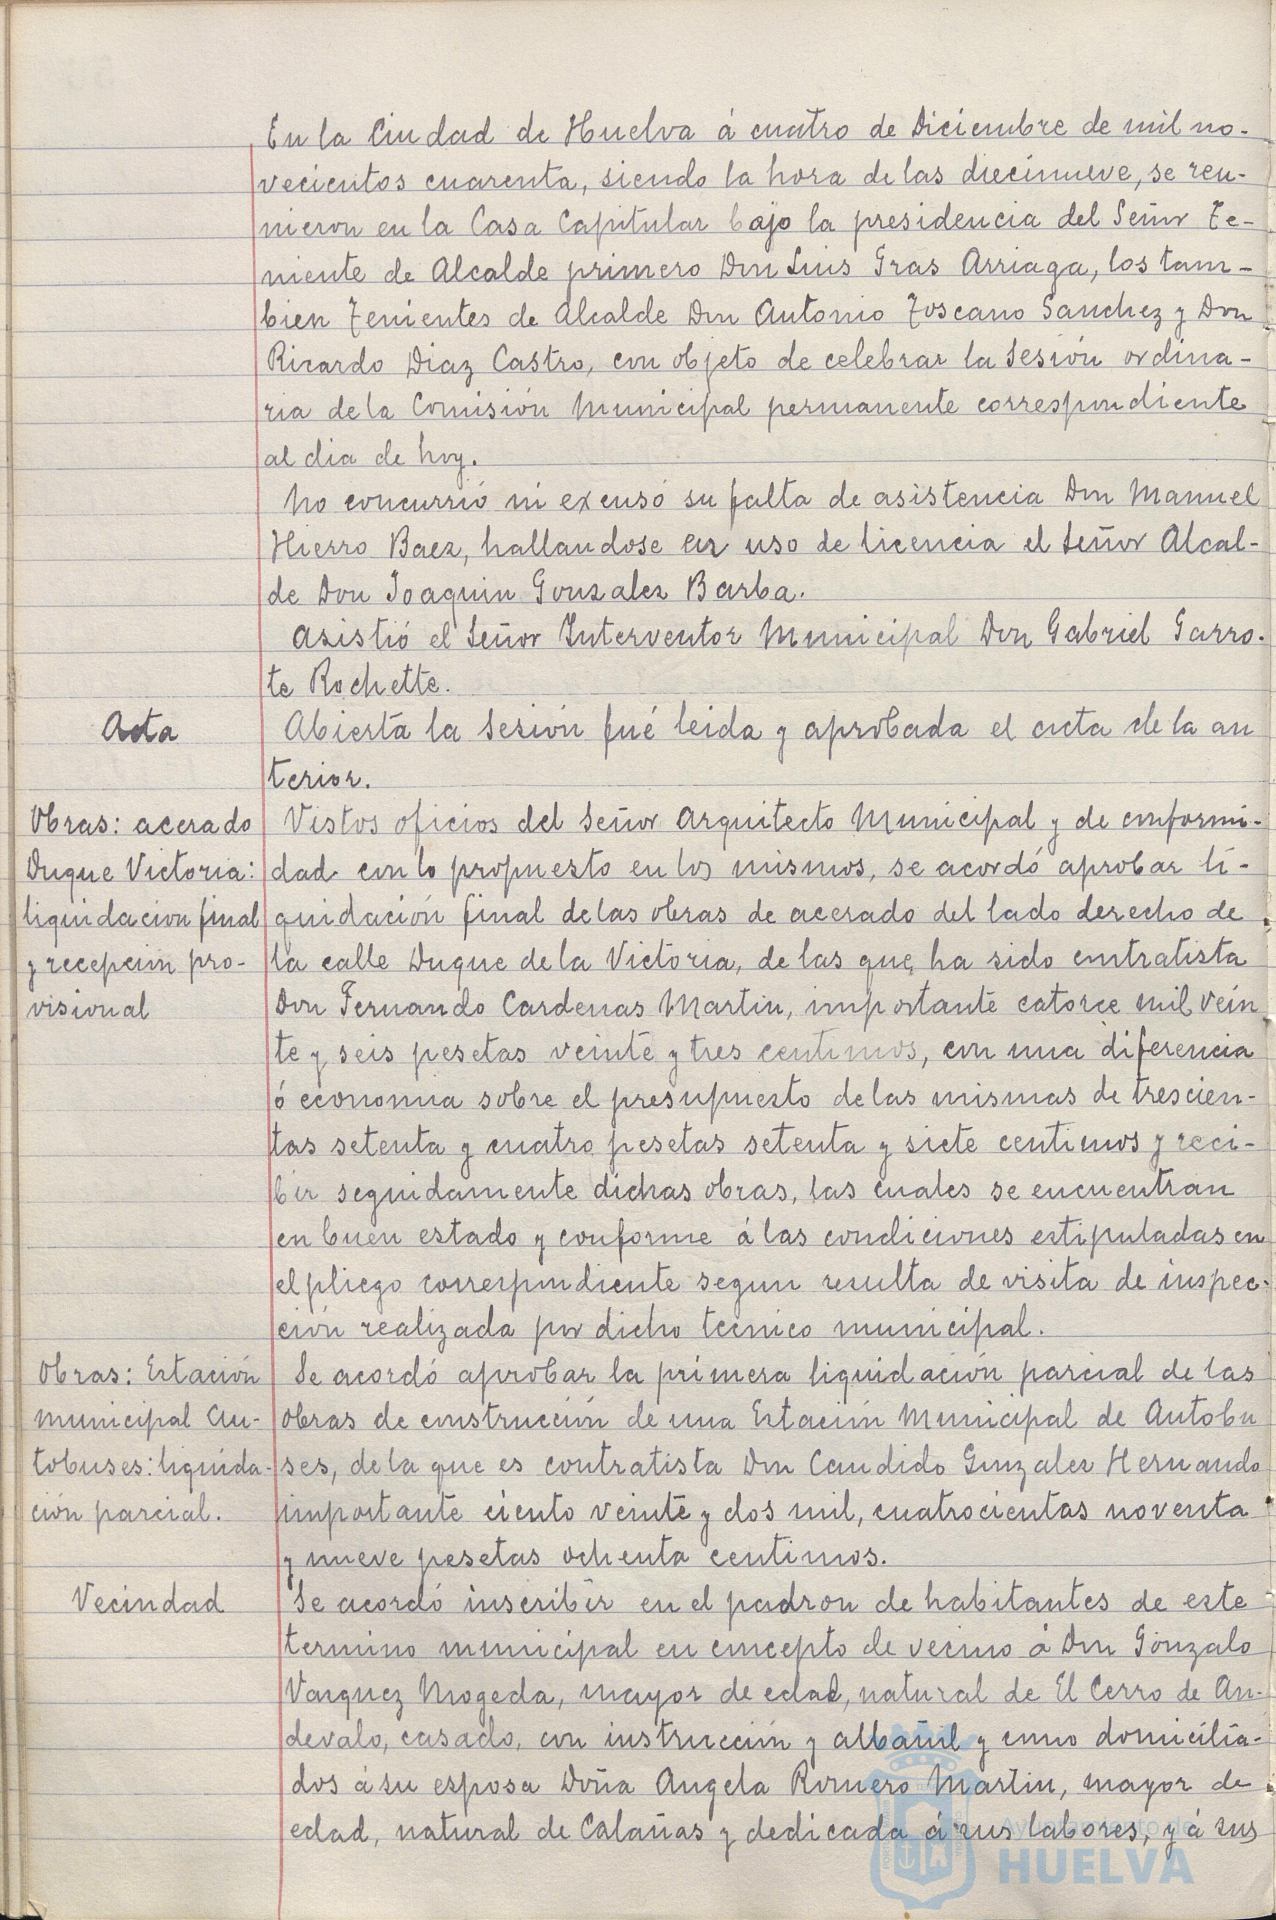 En la Ciudad de Huelva á cuatro de Diciembre de mil no-
vecientos cuarenta, siendo la hora de las diecinueve, se reu-
nieron en la Casa Capitular bajo la presidencia del Señor Te-
niente de Alcalde primero Don Luis Gras Arriaga, los tam-
bien Tenientes de Alcalde Don Antonio Toscano Sanchez y Don
Ricardo Diaz Castro, con objeto de celebrar la Sesión ordina-
ria de la Comisión Municipal permanente correspondiente
al dia de hoy.
No concurrió ni excusó su falta de asistencia Don Manuel
Hierro Baez, hallandose en uso de licencia el Señor Alcal-
de Don Joaquin Gonzalez Barba.
Asistió el Señor Interventor Municipal Don Gabriel Garro-
te Rochette.
Acta
Abierta la Sesión fué leida y aprobada el acta de la an
terior.
Obras: acerado
Duque Victoria:
liquidación final
y recepción pro-
visional
Vistos oficios del Señor Arquitecto Municipal y de conformi-
dad con lo propuesto en los mismos, se acordó aprobar li-
quidación final de las obras de acerado del lado derecho de
la calle Duque de la Victoria, de las que ha sido contratista
Don Fernando Cardenas Martin, importante catorce mil vein
te y seis pesetas veinte y tres centimos, con una diferencia
ó economia sobre el presupuesto de las mismas de trescien-
tas setenta y cuatro pesetas setenta y siete centimos y reci-
bir seguidamente dichas obras, las cuales se encuentran
en buen estado y conforme á las condiciones estipuladas en
el pliego correspondiente segun resulta de visita de inspec-
ción realizada por dicho tecnico municipal.
Obras: Estación
municipal Au-
tobuses: liquida-
ción parcial.
Se acordó aprobar la primera liquidación parcial de las
obras de construcción de una Estación Municipal de Autobu
ses, de la que es contratista Don Candido Gonzalez Hernando
importante ciento veinte y dos mil, cuatrocientas noventa
y nueve pesetas ochenta centimos.
Vecindad
Se acordó inscribir en el padron de habitantes de este
termino municipal en concepto de vecino á Don Gonzalo
Vazquez Mogeda, mayor de edad, natural de El Cerro de An-
devalo, casado, con instrucción y albañil y como domicilia-
dos á su esposa Doña Angela Romero Martin, mayor de
edad, natural de Calañas y dedicada á sus labores, y á sus
Ayuntamiento de
HUELVA